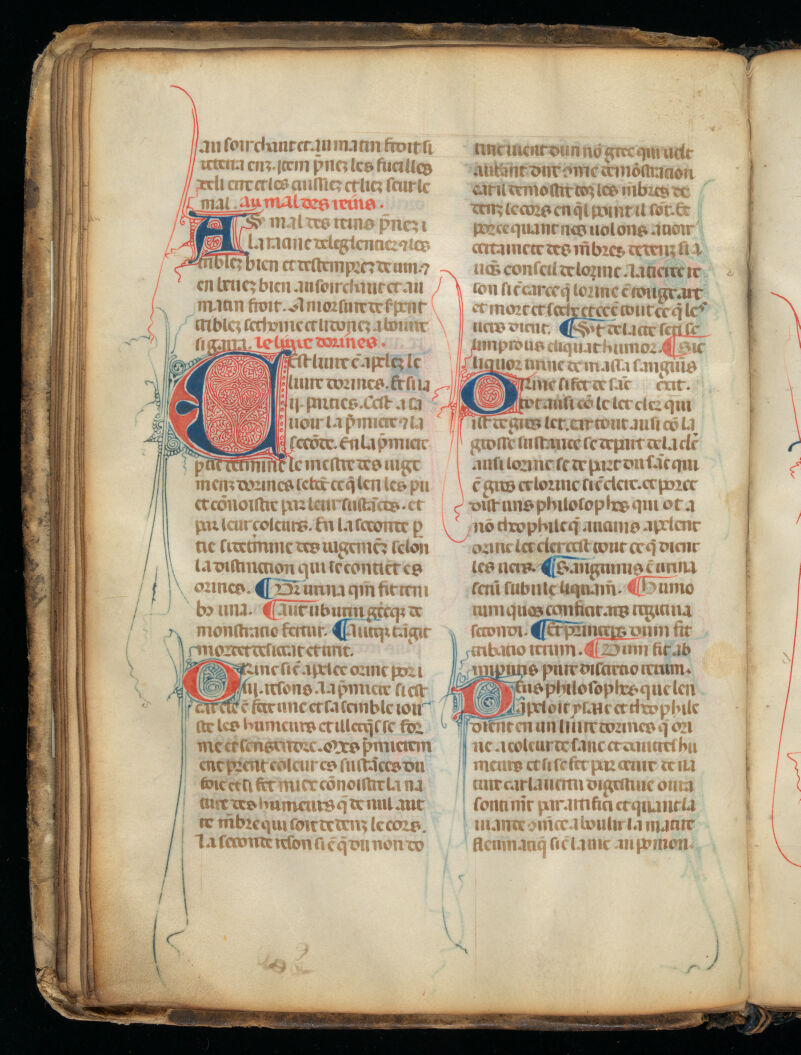 au soir chaut et au matin froit si
tenra enz. jtem p̃nez les fueilles
deli erre et les cuissiez et liez seur le
mal. au mal des reins.
AV mal des reins p̃nez i
la racine deleglentier ⁊ les
triblez bien et destemprez de uin ⁊
en beuez bien au soir chaut et au
matin froit. A morsure de ẜpent
triblez
sigma. le liure dorines.
Cest liure ẽ apelez le
liuire dorines. Et si i a
.ij. parties. Cest a sa
uoir la p̃miere ⁊ la
secõde. En la p̃miere
ptie determine le mestre des iuge
menz dorines selõc ce q̃ len les puet
et cõnoistre par leur sustãces. et
par leur coleurs. En la seconde p
tie si determine des iugemẽz selon
la distinction qui se contiẽt es
orines. Dr urina qm̃ fit reni
bo una. Aut ab urin greceq; de
monstratio fertur. Autq; tãgit
mordet desicat et urit.
Orine si ẽ apelee orine por i
iij. resons. La p̃miere si est
car ele ẽ fete une et sasemble iou
ste les humeurs et illecq̃s se for
me et sengendre. Mes p̃mierem
ent prent coleur es sustãces du
foie et si fet mieu cõnoistre la na
ture des humeurs q̃ de nul aut
re mẽbre qui soit dedenz le cors.
La seconde reson si ẽ q̃ du non do
rine uient dun nõ grec qui uelt
autant dire cõme demõstracion
car il demostre toz les mẽbres de
denz le cors en q̃l point il sõt. Et
por ce quant nos uolons auoir
certainete des mẽbres dedenz si a
uõs conseil de lorine. La tierce re
son si ẽ car ce q̃ lorine ẽ touge art
et mort et seche et ce ẽ tout ce q̃ les
uers dient. Vt de lacte seri se
iungit pus eliquat humor. Sic
liquor urine de massa sanguis
Orine si fet de sãc exit.
tot ausi cõ le let cler qui
ist de gros let. car tout ausi cõ la
grosse sustance se depart de la clẽ
ausi lorine se depart du sãc qui
ẽ gros et lorine si ẽ clere. et por ce
dist uns philosophes qui ot a
nõ theophile q̃ aucuns apelent
orine let cler cest tout ce q̃ dient
les uers. Sanguinis ẽ urina
serũ subtile liquam̃. Humo
rum quos conficit ars regitiua
secondi. Et princeps dum fit
cribatio rerum. Dum fit ab
inpuris pure discretio rerum.
Deus philosophes que len
apeloit ysaac et theophile
dient en un liure dorines q̃ ori
ne a coleur de sanc et dautres hu
meurs et si se fet par oeure de na
ture car la uertu digestiue oura
sont mlt par artifici et quant la
uiande cõmẽce a boulir la matire
fleumatiq̃ si ẽ laine au pomon.